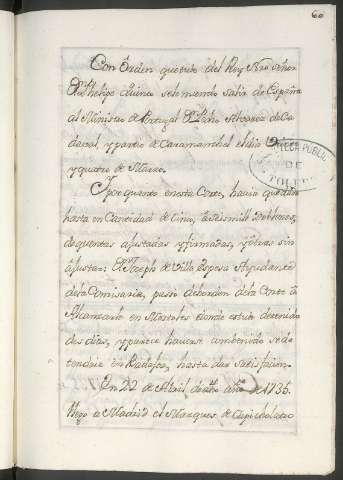 60
Con Orden que tubo del Rey Nro Señor
Dn Phelipe Quinto se le mando salir de España
al Ministro de Portugal Dn Pedro Alvarez de Ca
daval, y partio de Caramanchel el dia
y quatro de Marzo.
BIBLIOTECA PUBLICA
DE
TOLEDO
Y por quanto en esta Corte, havia quedado
hasta en Cantidad de cinco, a seis mil Doblones,
de quentas ajustadas y firmadas, y otras sin
ajustar: Dn Joseph de Villa Ayudante
de la Comisaria, passo de orden de la Corte à
Alcanzarle en Mostoles donde estubo detenido
dos dias, y parece haverse combenido se de
tendria en Badajoz, hasta dar satisfacion.
En 22 de Abril de año de 1735.
llego a Madrid el Marques de